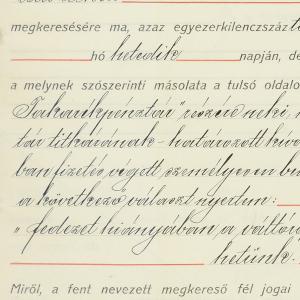 megkeresésére ma, azaz egyezerkilenczszáz
hó hetedik napján, de
a melynek szószerinti másolata a tulsó oldalo
Takarékpénztár" részére neki,
tár titkárának - határozott kívá
ban fizetés végett személyesen bu
a következő választ nyertem:
"fedezet hiányában, a váltó
hetünk".
Miről, a fent nevezett megkereső fél jogai